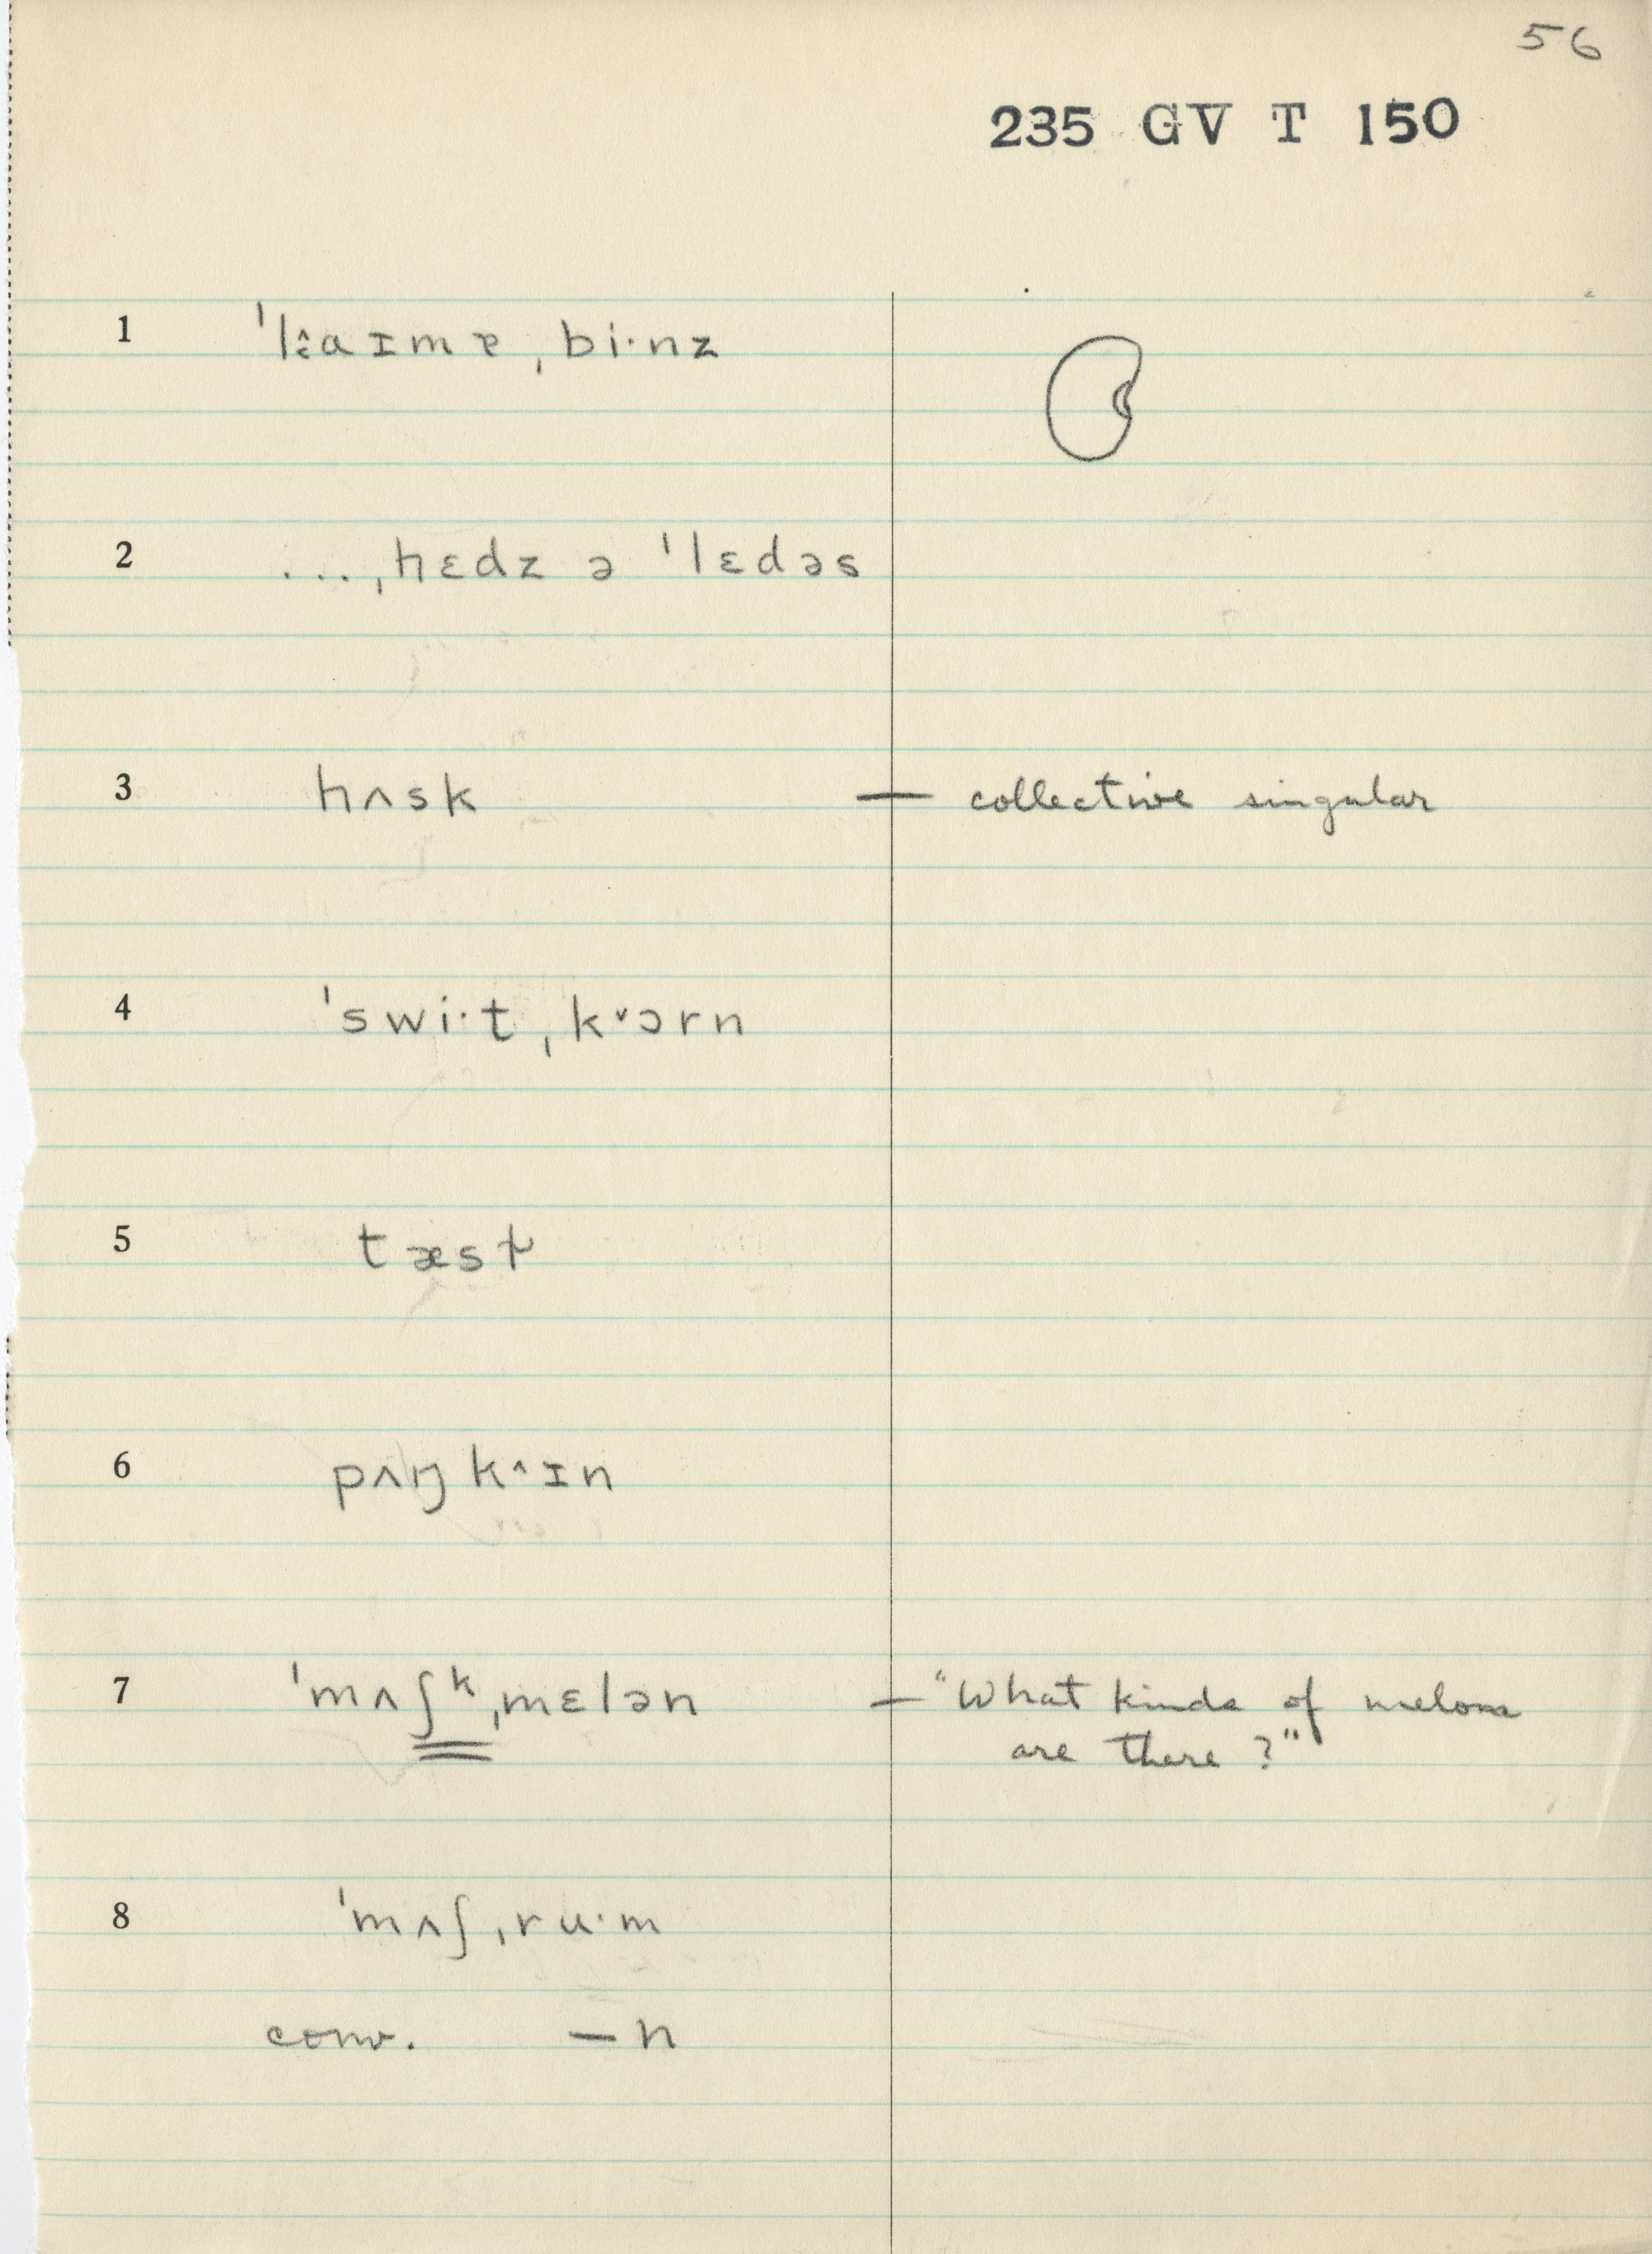 56
235 GV T 150
1 ˈlːɑɪmɐ ˌbi·nz
2 ...ˌhɛdz ə ˈlɛdəs
3 hʌsk — collective singular
4 ˈswi·t ˌk˅ɔrn
5 tæsɫ
6 pʌŋk^ɪn
7 ˈmʌʃᵏˌmɛlən — "What kinds of melons
are there?"
8 ˈmʌʃˌru·m
conv. — n